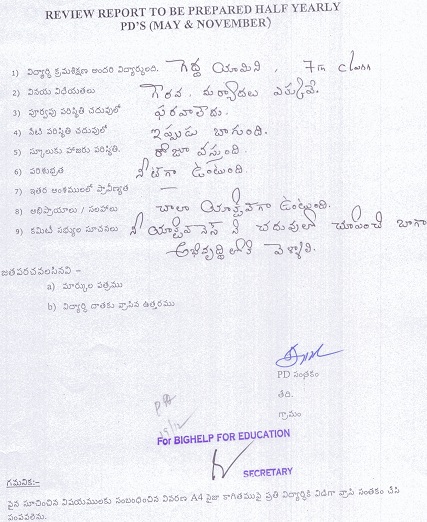 REVIEW REPORT TO BE PREPARED HALF YEARLY
PD'S (MAY & NOVEMBER)
1) విద్యార్థి క్రమశిక్షణ అందరి విద్యార్థులది. గెద్ద యామిని, 7th class
2) వినయ విధేయతలు గౌరవ మర్యాదలు ఎక్కువే.
3) పూర్వపు పరిస్థితి చదువులో పరవాలేదు.
4) నేటి పరిస్థితి చదువులో ఇప్పుడు బాగుంది.
5) స్కూలుకు హాజరు పరిస్థితి. రోజూ వస్తుంది.
6) పరిశుభ్రత నీట్‌గా ఉంటుంది.
7) ఇతర అంశములలో ప్రావీణ్యత —
8) అభిప్రాయాలు / సలహాలు చాలా యాక్టివ్‌గా ఉంటుంది.
9) కమిటీ సభ్యుల సూచనలు నీ యాక్టివ్‌నెస్ ని చదువులో చూపించి బాగా
అభివృద్ధిలోకి వెళ్ళాలి.
జతపరచవలసినవి –
a) మార్కుల పత్రము
b) విద్యార్థి దాతకు వ్రాసిన ఉత్తరము
PD సంతకం
తేది.
గ్రామం
For BIGHELP FOR EDUCATION
SECRETARY
గమనిక:–
పైన సూచించిన విషయములకు సంబంధించిన వివరణ A4 సైజు కాగితముపై ప్రతి విద్యార్థికి విడిగా వ్రాసి సంతకం చేసి
పంపవలెను.